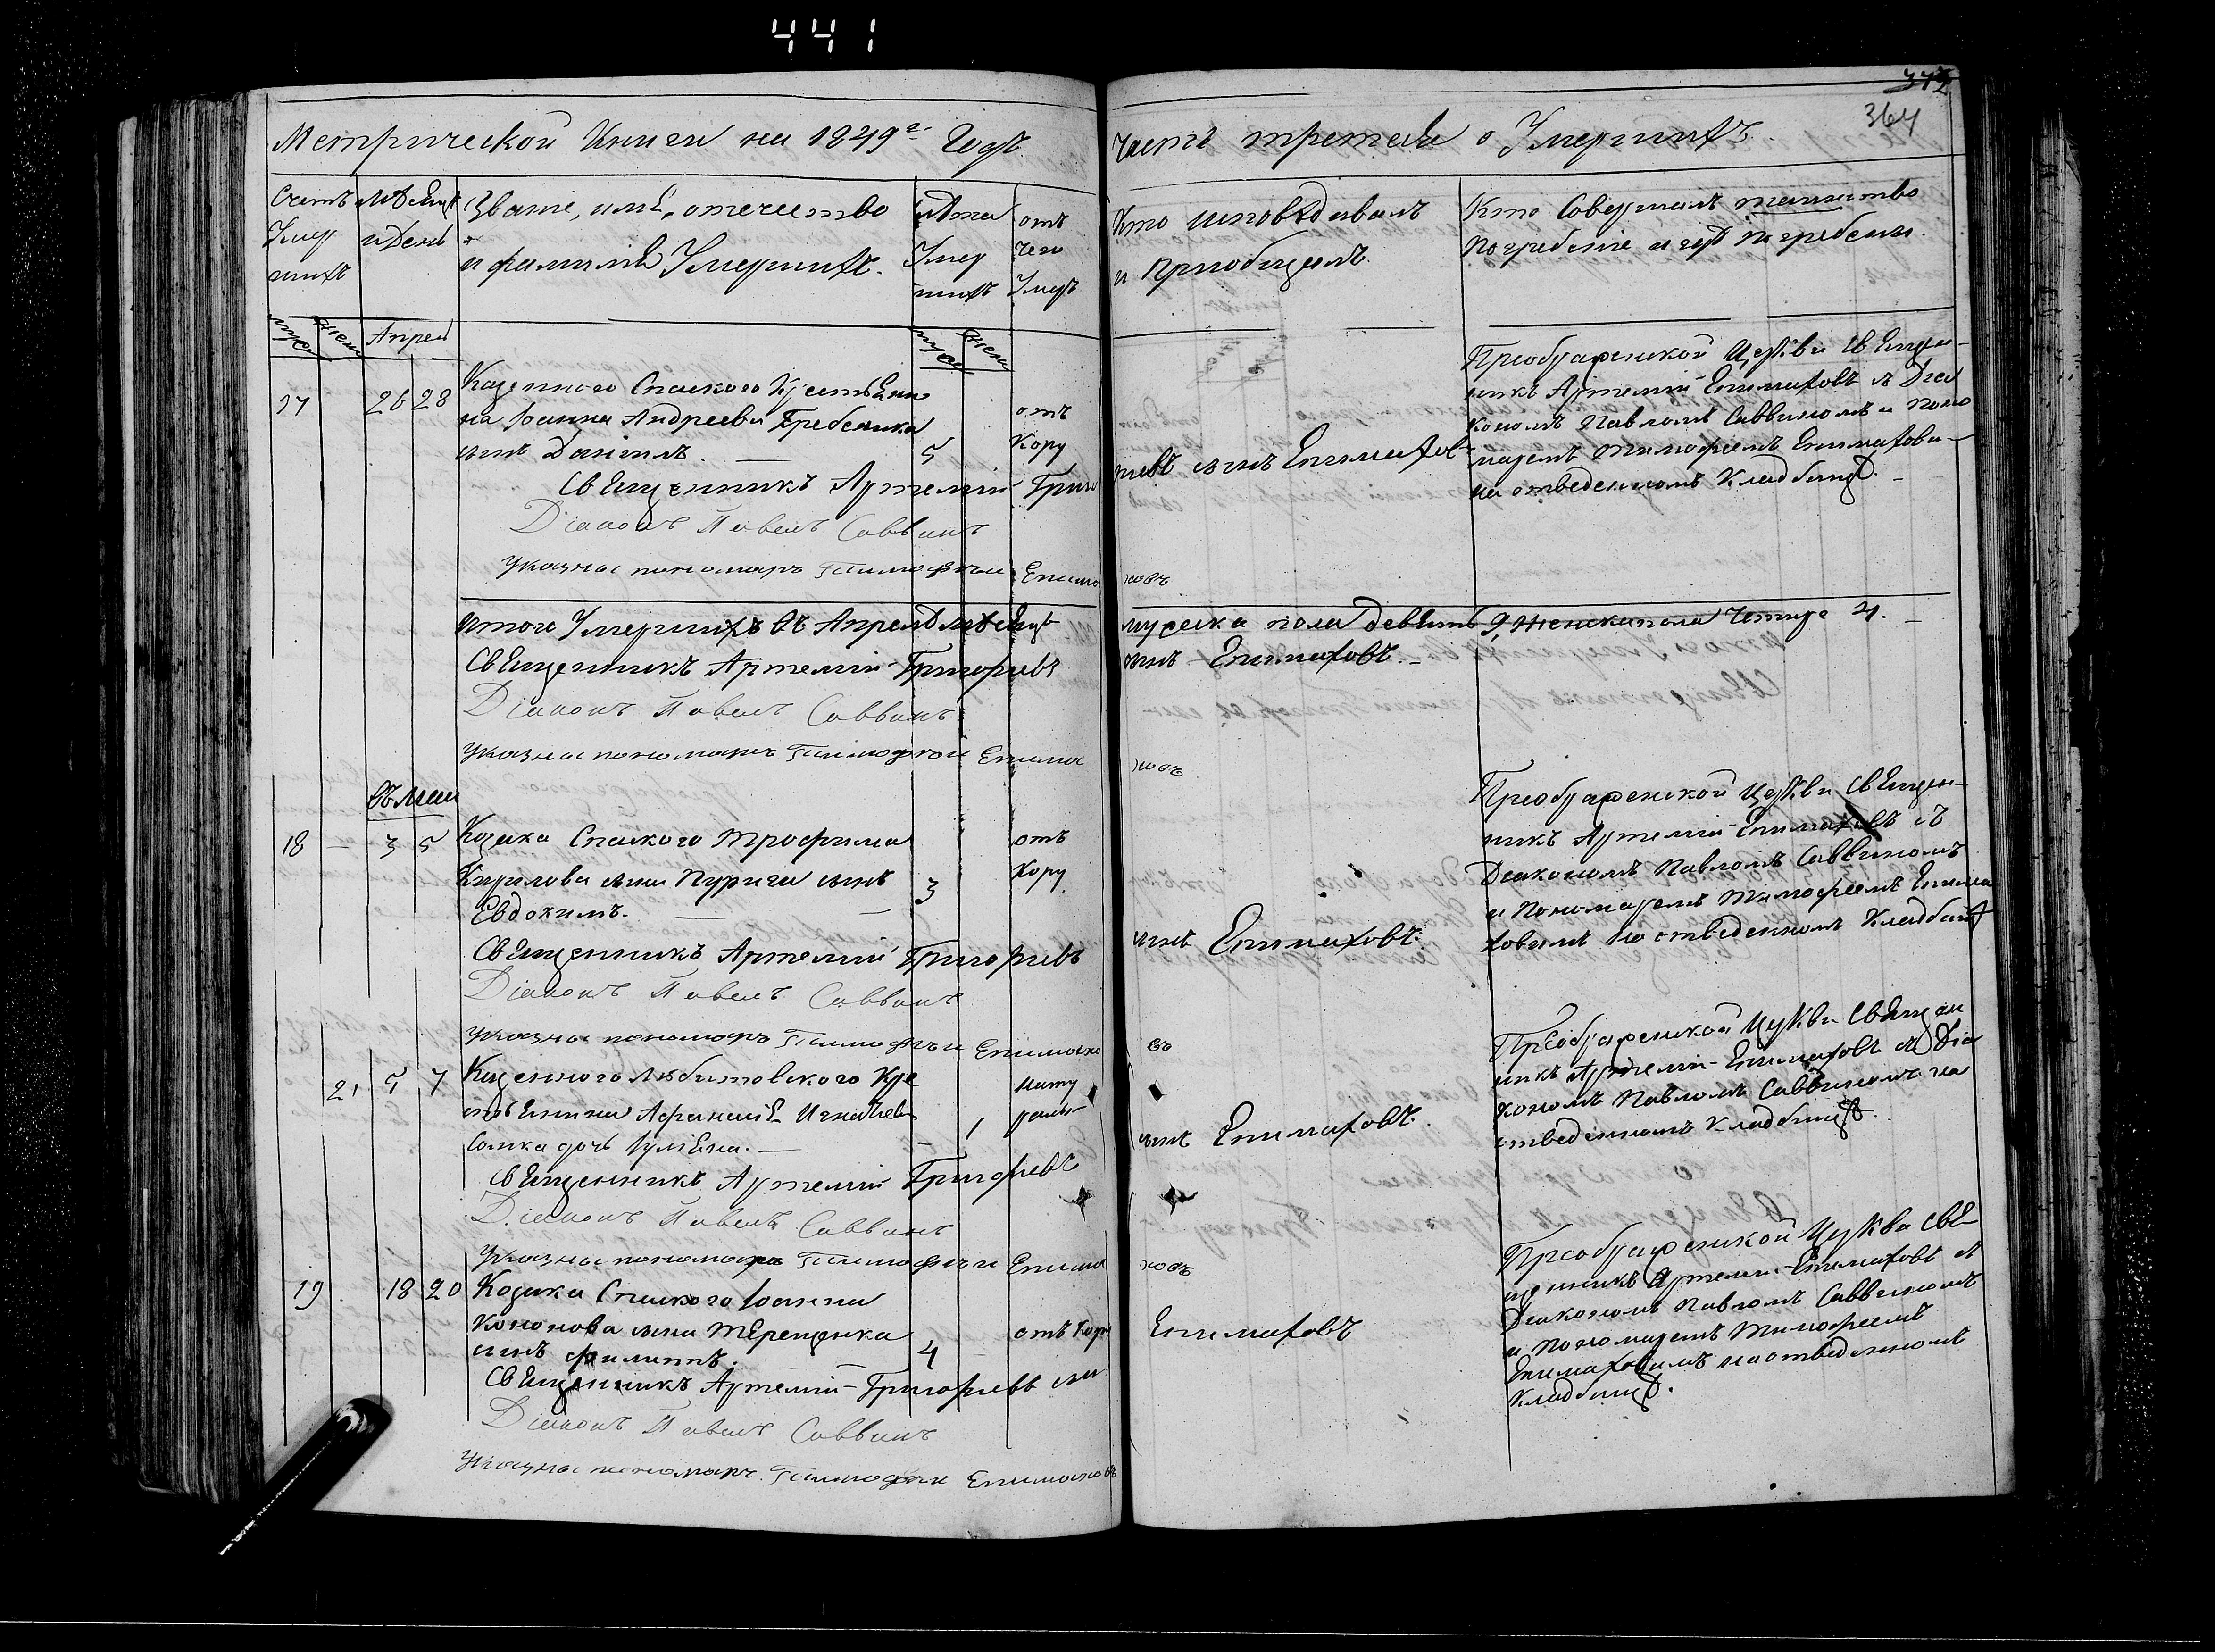 441
372
364
Метрической Книги на 1849г Годъ.
Часть третья о Умершихъ.
Счетъ Умершихъ
Мѣсяцъ и День
Званіе, имя, отечество и фамилія Умершихъ.
Лѣта Умершихъ
отъ Чего Умеръ
Кто исповѣдывалъ и Приобщалъ.
Кто Совершалъ таинство
погребеніе и гдѣ погребены.
муж жен Апрель муж жен
17 26 28 Казенного Спаского Крестьяни
на Іоанна Андреева Гребеника
сынъ Даніилъ. — 5
отъ
Кору
Священникъ Артемій Григориевъ сынъ Епимаховъ
Діаконъ Павелъ Саввинъ
Указный пономарь Тимофѣй Епимаховъ
Преображенской Церкви Священ-
никъ Артемій Епимаховъ съ Діа
кономъ Павломъ Саввиномъ и поно
маремъ Тимофеемъ Епимахови-
на отведенномъ Кладбищѣ. —
Итого Умершихъ въ Апрелѣ мѣсяцѣ мужеска пола девять 9, женска пола Четыре 4. —
Священникъ Артемій Григориевъ сынъ Епимаховъ. —
Діаконъ Павелъ Саввинъ
Указный пономарь Тимофѣй Епимаховъ
Въ Маи
18 — 3 5 Козака Спаского Трофима
Кирилова сына Пурига сынъ 3
Евдокимъ. — —
отъ
Кору
Священникъ Артемій Григориевъ сынъ Епимаховъ.
Діаконъ Павелъ Саввинъ
Указный пономарь Тимофѣй Епимаховъ
Преображенской Церкви Священ-
никъ Артемій Епимаховъ съ
Діакономъ Павломъ Саввиномъ
и Пономаремъ Тимофеемъ Епима
ховымъ на отведенномъ Кладбищѣ
21 5 7 Казенного Любитовского Кре
стьянина Афанасія Игнатьева 1
дочь Іуліяна. —
Священникъ Артемій Григориевъ сынъ Епимаховъ.
Діаконъ Павелъ Саввинъ
Указный пономарь Тимофѣй Епимаховъ
Преображенской Церкви Священ
никъ Артемій Епимаховъ съ Діа
кономъ Павломъ Саввиномъ на
отведенномъ Кладбищѣ.
19 18 20 Козака Спаского Іоанна
Кононова сына Терещенка
сынъ Филиппъ. 4
отъ Кору
Священникъ Артемій Григориевъ сын Епимаховъ
Діаконъ Павелъ Саввинъ
Указный пономарь Тимофѣй Епимаховъ
Преображенской Церкви Свя
щенникъ Артемій Епимаховъ съ
Діакономъ Павломъ Саввиномъ
и Пономаремъ Тимофеемъ
Епимаховымъ на отведенномъ
Кладбищѣ.